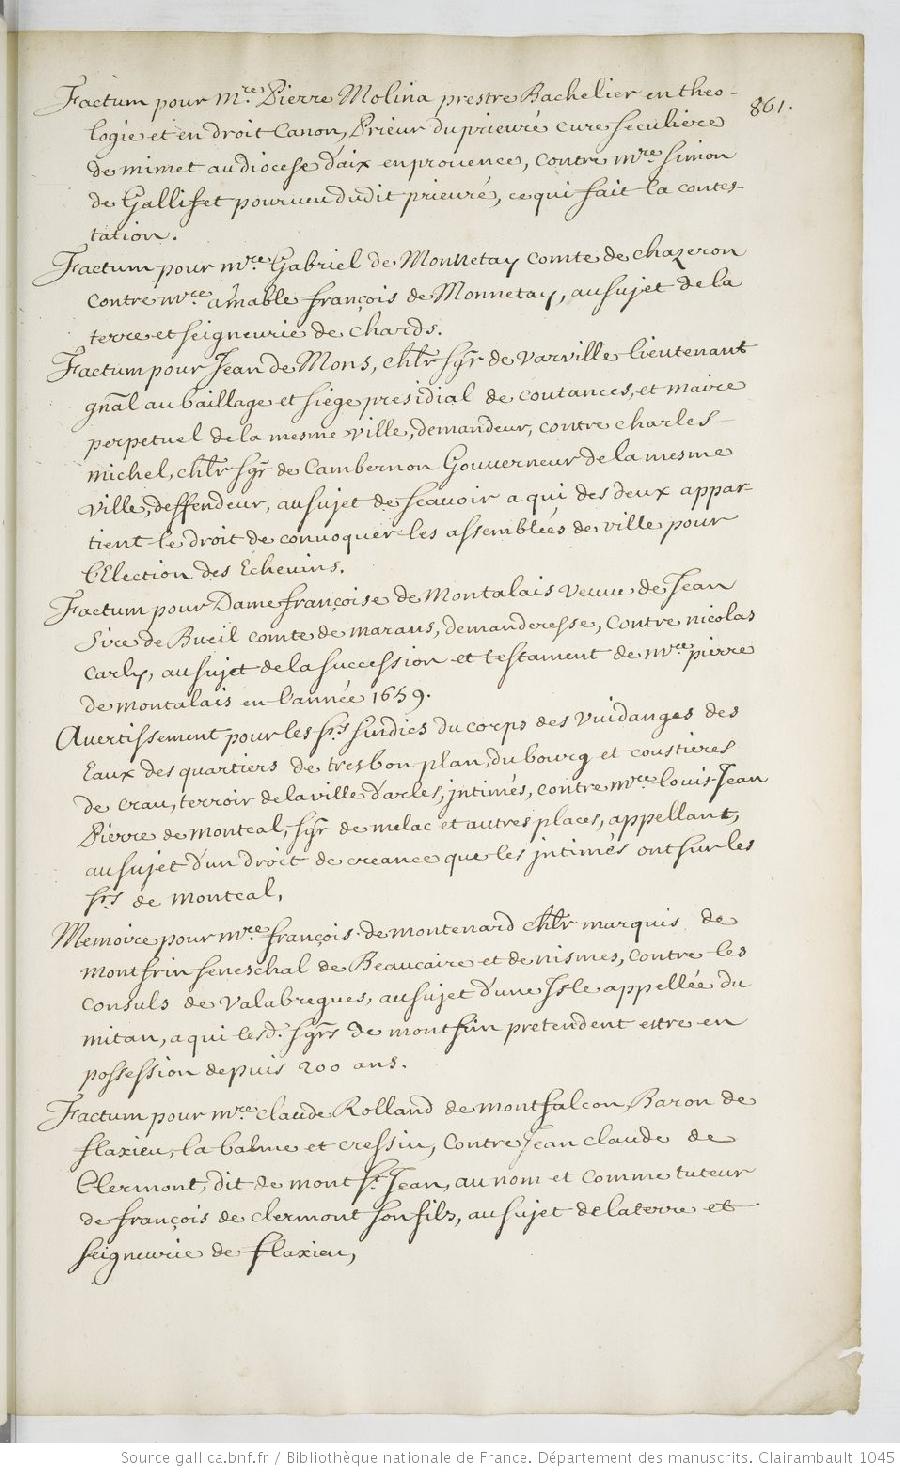 861.
Factum pour m.re Pierre Molina prestre Bachelier en theo-
logie et en droit Canon, Prieur du prieuré cure seculiere
de mimet au diocese d'aix en prouence, contre m.re simon
de Galliffet pourueu dudit prieuré, ce qui fait la contes-
tation.
Factum pour m.re Gabriel de Monnetay comte de chazeron
contre m.re amable françois de Monnetay, au sujet de la
terre et seigneurie de chards.
Factum pour Jean de Mons, chlr sgr de varville lieutenant
gnal au baillage et siége presidial de coutances, et maire
perpetuel de la mesme ville, demandeur, contre charles
michel, chlr sgr de Cambernon Gouuerneur de la mesme
ville, deffendeur, au sujet de scauoir a qui des deux appar-
tient le droit de conuoquer les assemblées de ville pour
l'Election des Echeuins.
Factum pour Dame françoise de Montalais veuue de Jean
Sire de Bueil comte de marans, demanderesse, contre nicolas
Carly, au sujet de la succession et testament de m.re pierre
de montalais en l'année 1659.
Auertissement pour les srs sindics du corps des vuidanges des
Eaux des quartiers de tresbon plan, du bourg et coustieres
de crau, terroir de la ville d'arles, jntimés, contre m.re louis-Jean
Pierre de monteal, sgr de melac et autres places, appellant,
au sujet d'un droit de creance que les jntimés ont sur les
srs de monteal.
Memoire pour m.re françois de montenard chlr marquis de
montfrin seneschal de Beaucaire et de nismes, contre les
Consuls de Valabregues, au sujet d'une Isle appellée du
mitan, a qui les d. sgrs de montfrin pretendent estre en
possession depuis 200 ans.
Factum pour m.re claude Rolland de montfalcon, Baron de
flaxieu, la balme et cressin, Contre Jean claude de
Clermont, dit de mont St. Jean, au nom et comme tuteur
de françois de clermont son fils, au sujet de la terre et
seigneurie de flaxieu,
Source gallica.bnf.fr / Bibliothèque nationale de France. Département des manuscrits. Clairambault 1045